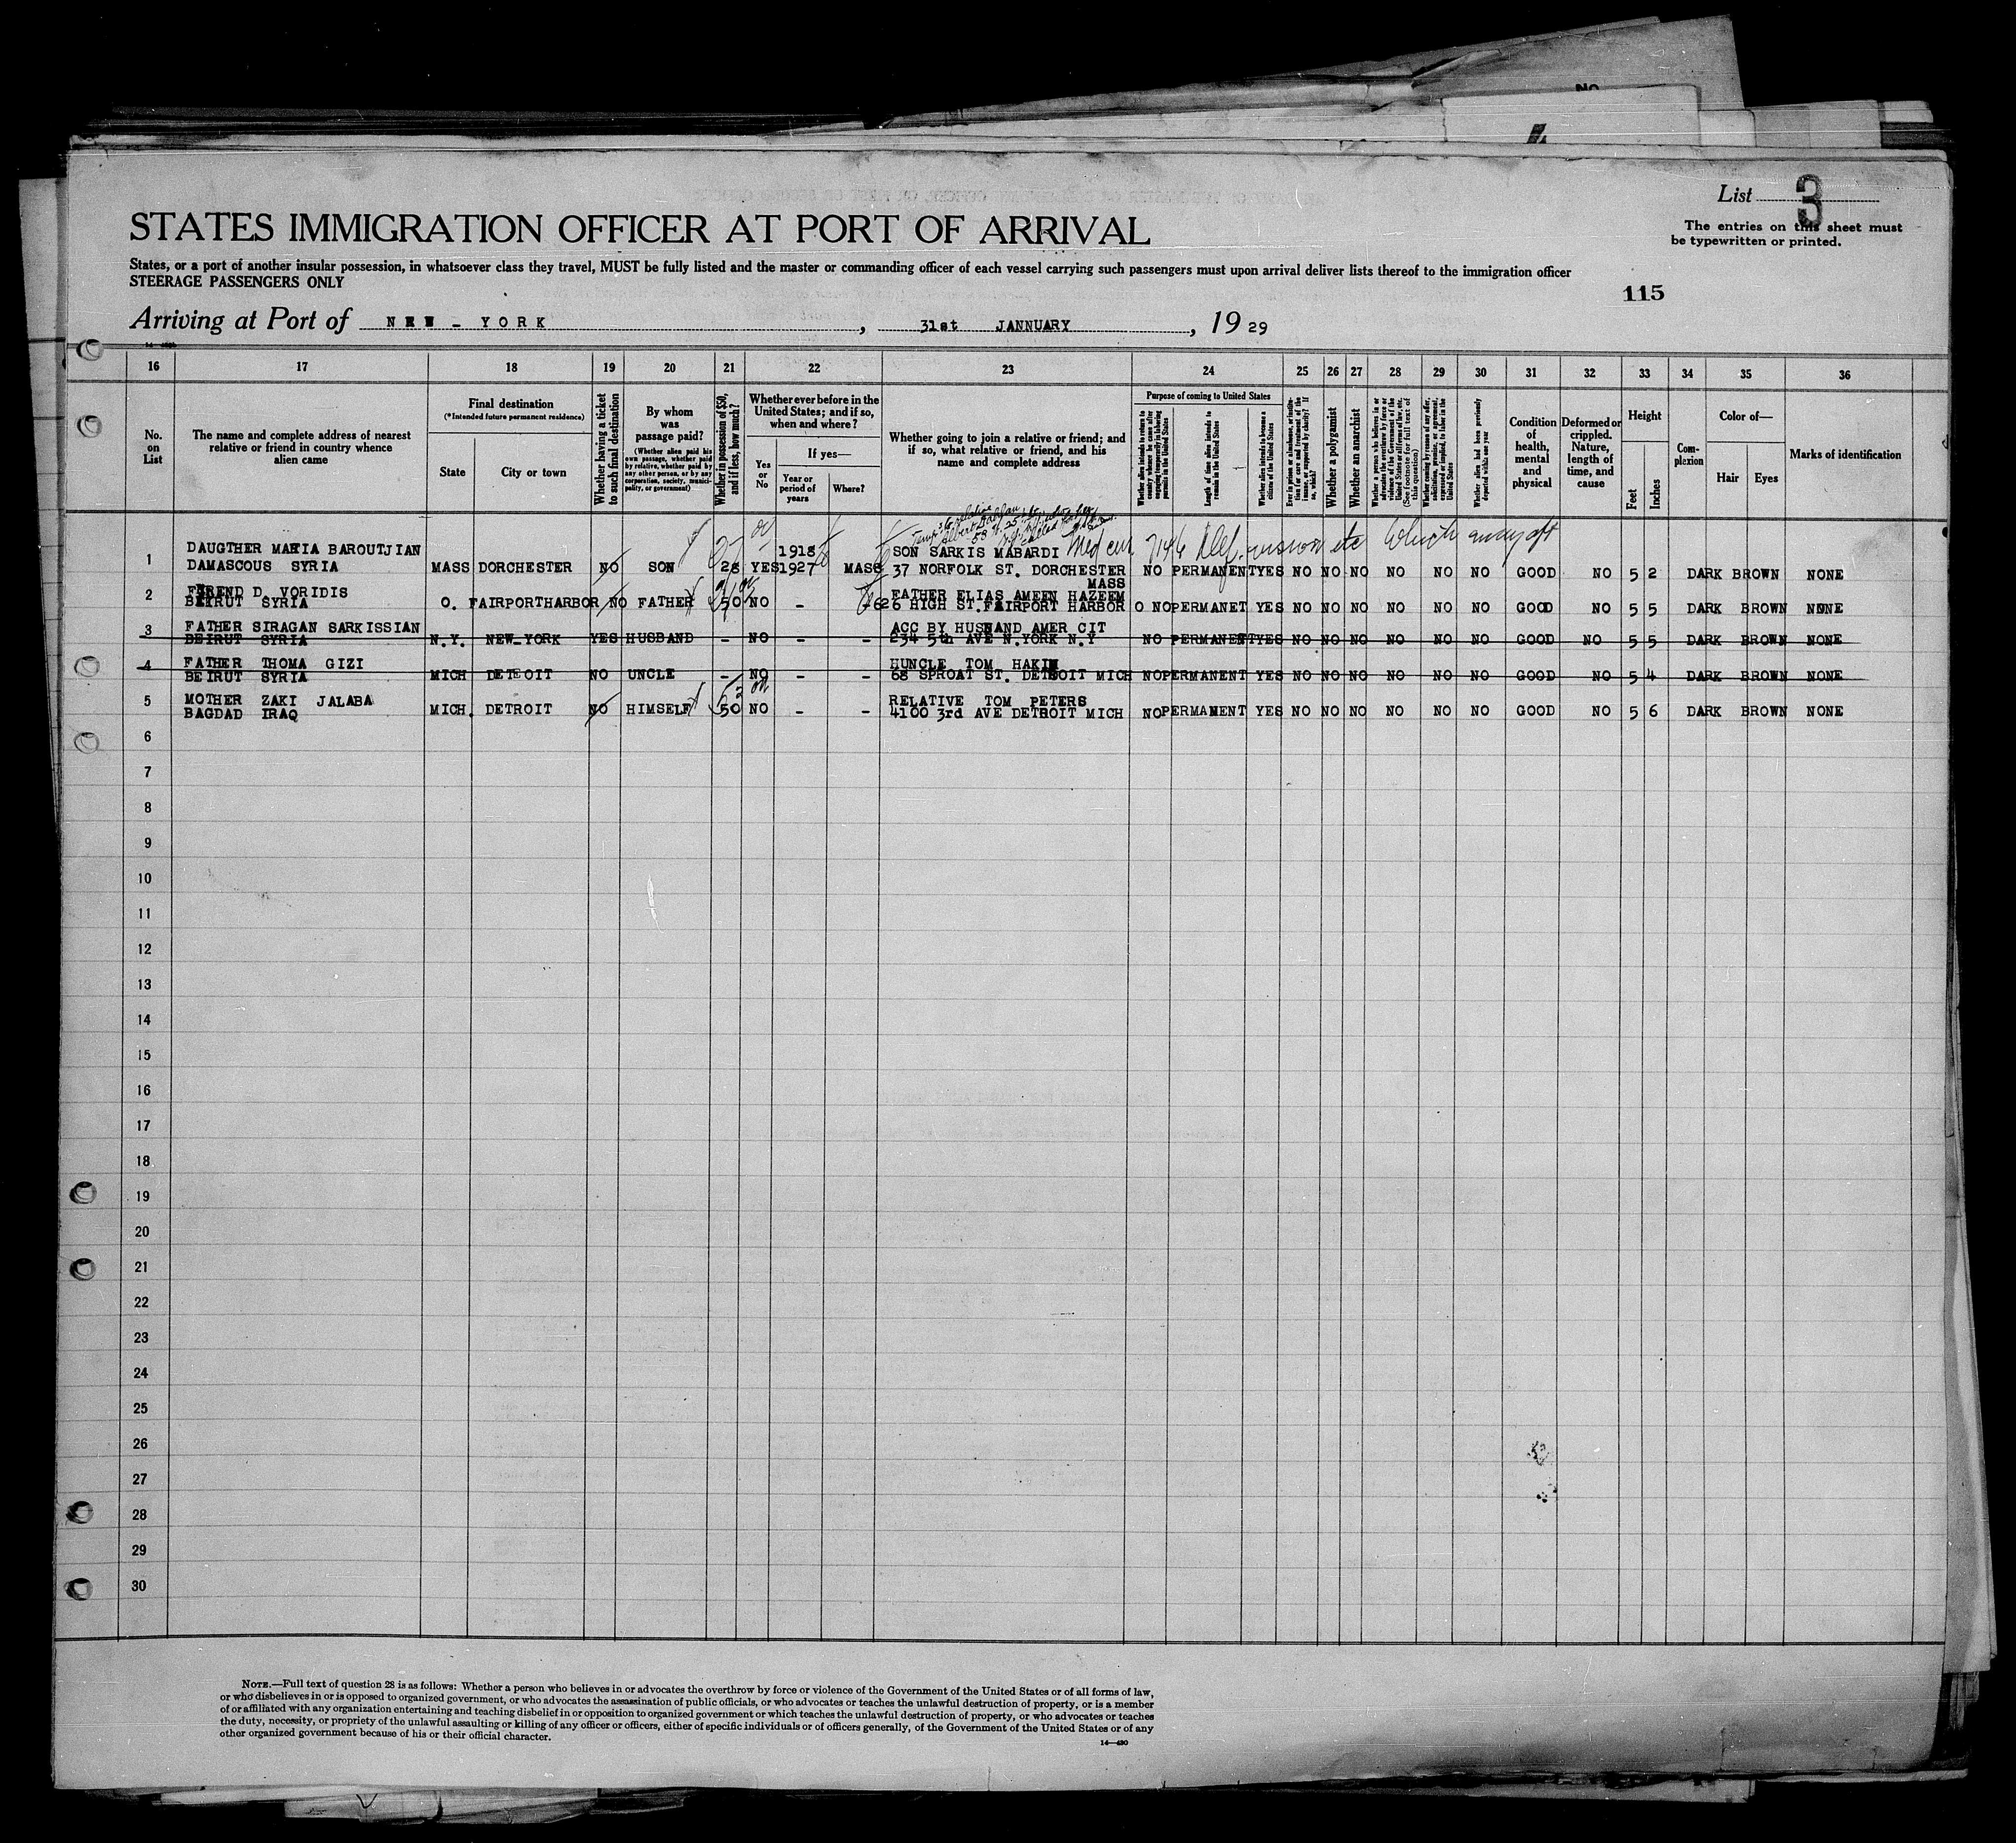 No
List 3
The entries on this sheet must
be typewritten or printed.
STATES IMMIGRATION OFFICER AT PORT OF ARRIVAL
States, or a port of another insular possession, in whatsoever class they travel, MUST be fully listed and the master or commanding officer of each vessel carrying such passengers must upon arrival deliver lists thereof to the immigration officer
STEERAGE PASSENGERS ONLY
115
Arriving at Port of NEW - YORK, 31st JANNUARY, 19 29
16 17 18 19 20 21 22 23 24 25 26 27 28 29 30 31 32 33 34 35 36
No. on List
The name and complete address of nearest relative or friend in country whence alien came
Final destination
(*Intended future permanent residence)
State
City or town
Whether having a ticket to such final destination
By whom was passage paid?
(Whether alien paid his own passage, whether paid by relative, whether paid by any other person, or by any corporation, society, municipality, or government)
Whether in possession of $50, and if less, how much?
Whether ever before in the United States; and if so, when and where?
Yes or No
If yes—
Year or period of years
Where?
Whether going to join a relative or friend; and if so, what relative or friend, and his name and complete address
Purpose of coming to United States
Whether alien intends to return to country whence he came after engaging temporarily in laboring pursuits in the United States
Length of time alien intends to remain in the United States
Whether alien intends to become a citizen of the United States
Ever in prison or almshouse, or institution for care and treatment of the insane, or supported by charity? If so, which?
Whether a polygamist
Whether an anarchist
(See footnote for full text of this question)
Whether alien had been previously deported within one year
Condition of health, mental and physical
Deformed or crippled. Nature, length of time, and cause
Height
Feet
Inches
Complexion
Color of—
Hair
Eyes
Marks of identification
1 DAUGTHER MARIA BAROUTJIAN 1918 SON SARKIS MABARDI
DAMASCOUS SYRIA MASS DORCHESTER NO SON 28 YES 1927 MASS 37 NORFOLK ST. DORCHESTER NO PERMANENT YES NO NO NO NO NO NO GOOD NO 5 2 DARK BROWN NONE
MASS
2 FEREND D. VORIDIS FATHER ELIAS AMEEN HAZEEM
BEIRUT SYRIA O. FAIRPORTHARBOR NO FATHER 50 NO - - 626 HIGH ST. FAIRPORT HARBOR O NO PERMANET YES NO NO NO NO NO NO GOOD NO 5 5 DARK BROWN NONE
3 FATHER SIRAGAN SARKISSIAN ACC BY HUSBAND AMER CIT
BEIRUT SYRIA N.Y. NEW-YORK YES HUSBAND - NO - - 234 5th AVE N.YORK N.Y NO PERMANENT YES NO NO NO NO NO NO GOOD NO 5 5 DARK BROWN NONE
4 FATHER THOMA GIZI HUNCLE TOM HAKIM
BEIRUT SYRIA MICH DETROIT NO UNCLE - NO - - 68 SPROAT ST. DETROIT MICH NO PERMANENT YES NO NO NO NO NO NO GOOD NO 5 4 DARK BROWN NONE
5 MOTHER ZAKI JALABA RELATIVE TOM PETERS
BAGDAD IRAQ MICH. DETROIT NO HIMSELF 50 NO - - 4100 3rd AVE DETROIT MICH NO PERMAMENT YES NO NO NO NO NO NO GOOD NO 5 6 DARK BROWN NONE
6
7
8
9
10
11
12
13
14
15
16
17
18
19
20
21
22
23
24
25
26
27
28
29
30
NOTE.—Full text of question 28 is as follows: Whether a person who believes in or advocates the overthrow by force or violence of the Government of the United States or of all forms of law,
or who disbelieves in or is opposed to organized government, or who advocates the assassination of public officials, or who advocates or teaches the unlawful destruction of property, or is a member
of or affiliated with any organization entertaining and teaching disbelief in or opposition to organized government or which teaches the unlawful destruction of property, or who advocates or teaches
the duty, necessity, or propriety of the unlawful assaulting or killing of any officer or officers, either of specific individuals or of officers generally, of the Government of the United States or of any
other organized government because of his or their official character.
14—430